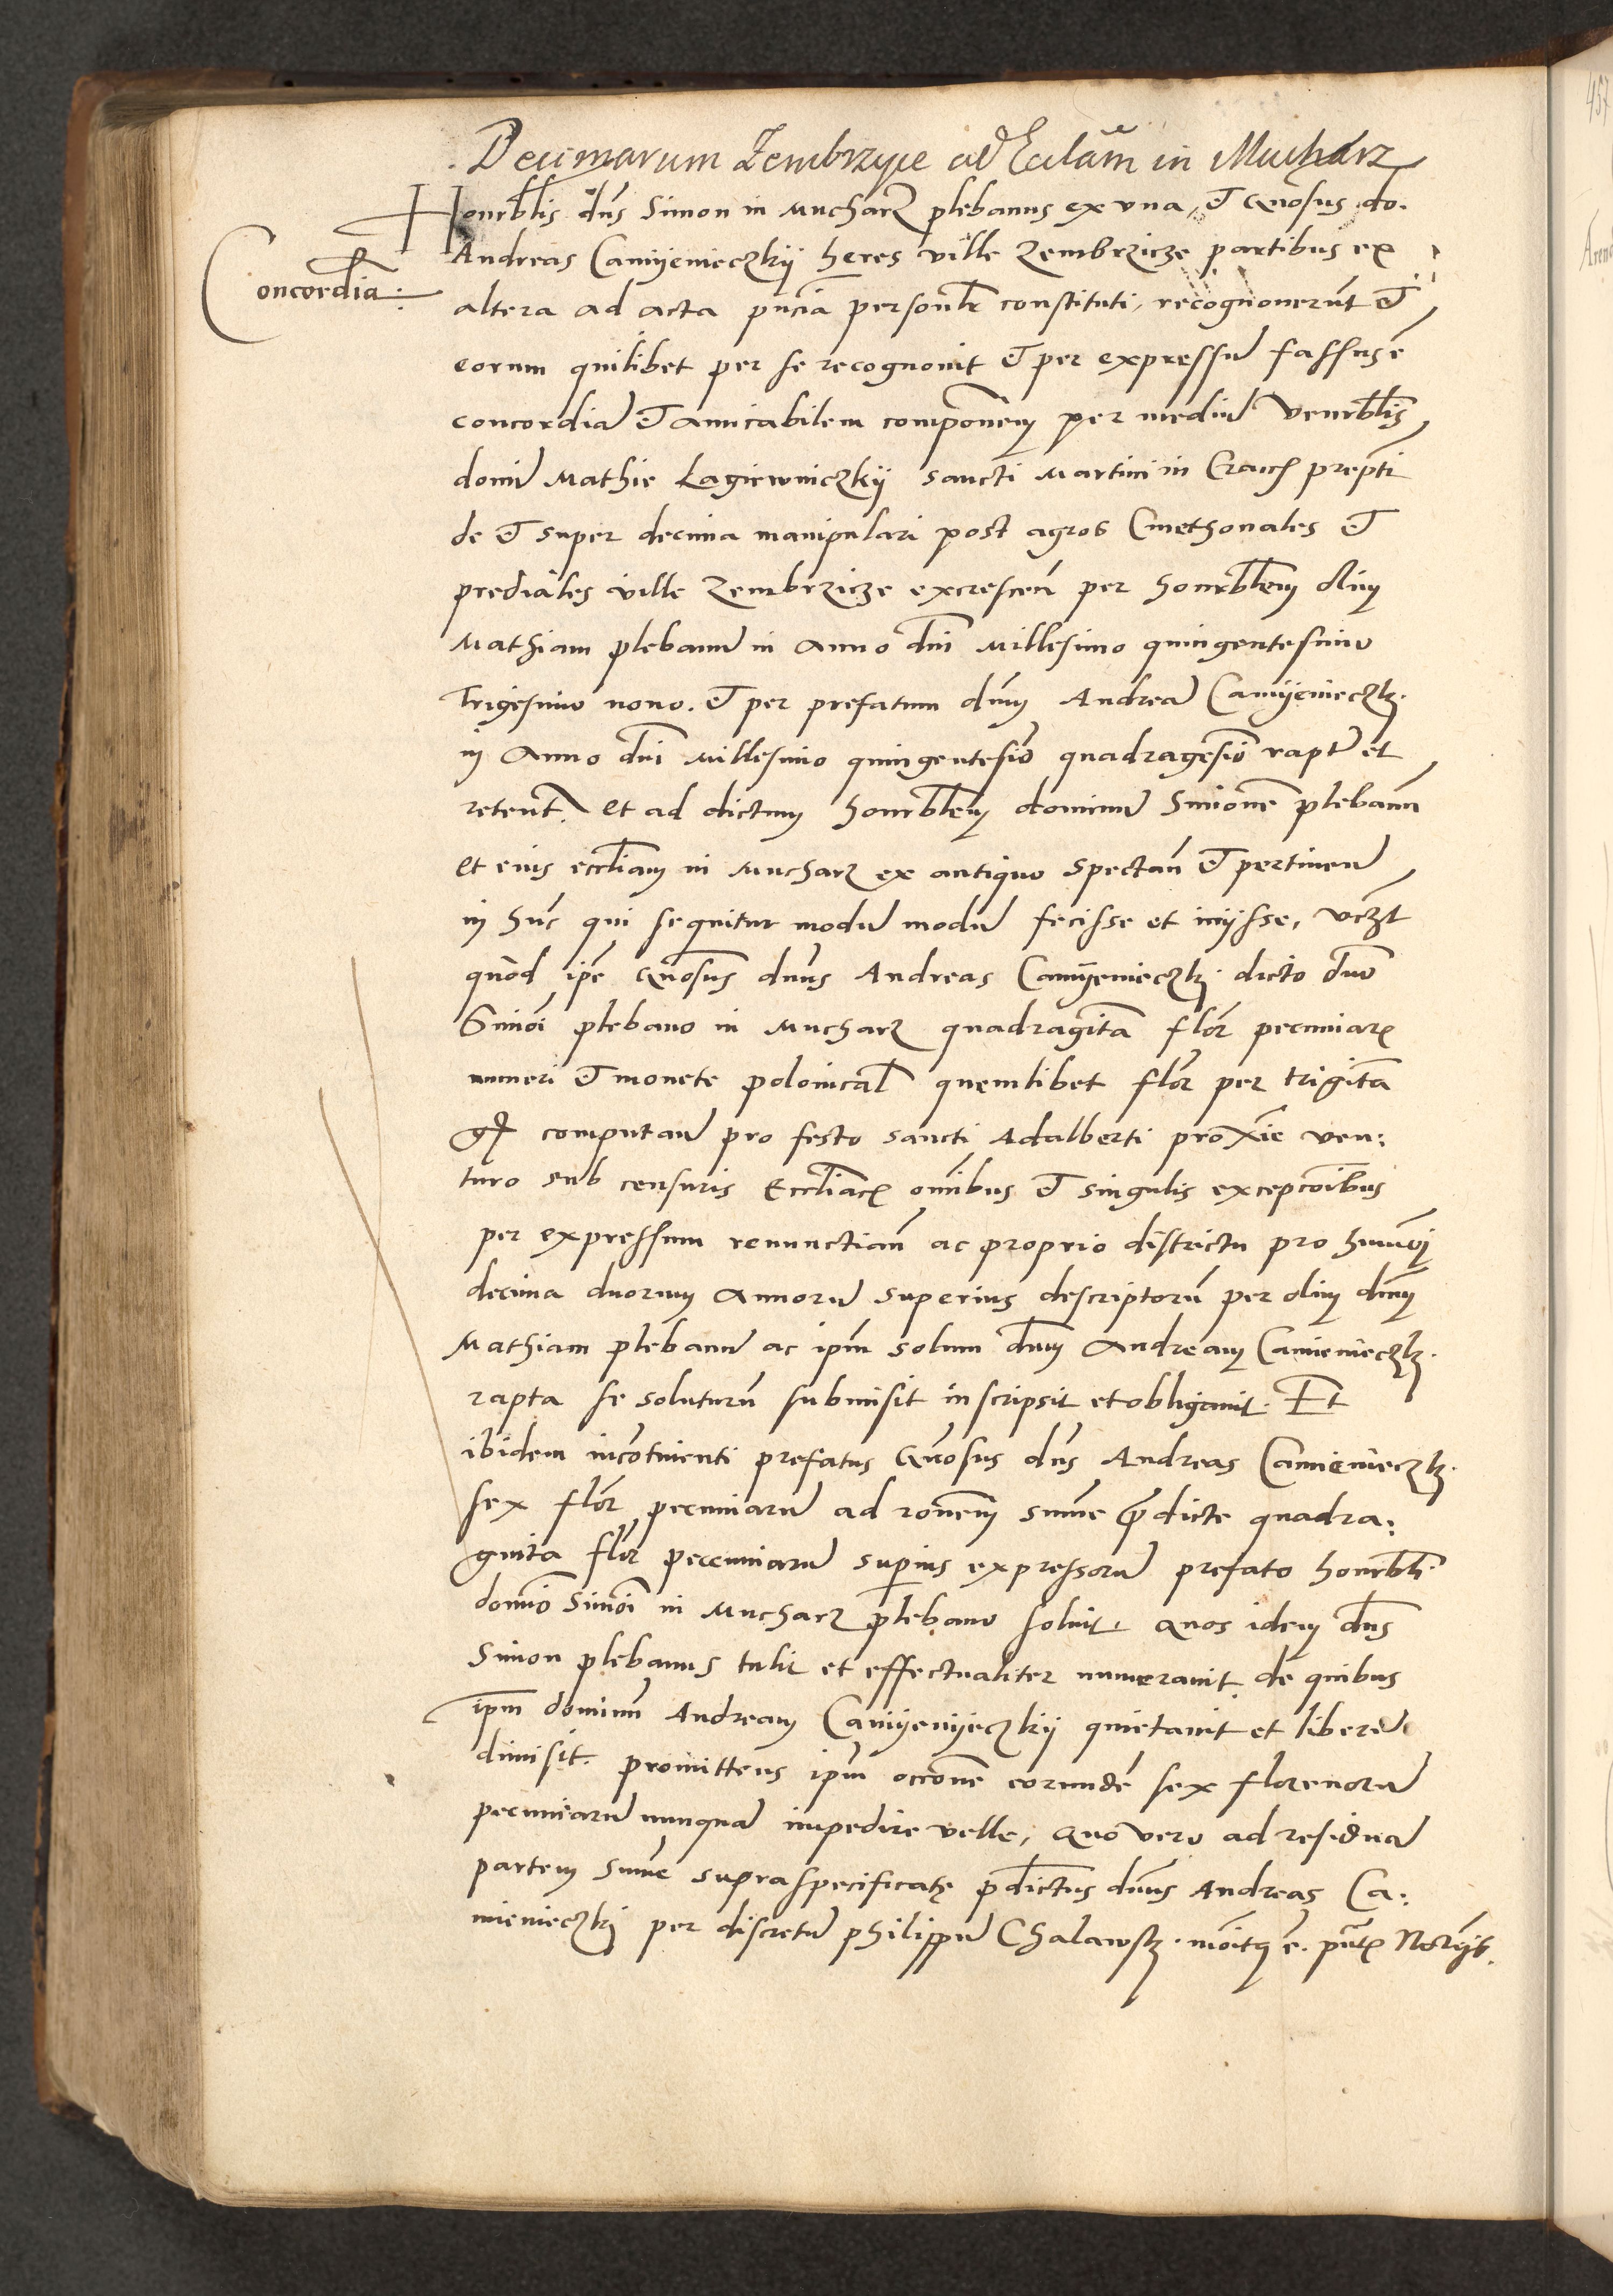 Decimarum Zembrzyce ad Eccłam in Mucharz
Honrblis dns Simon in Mucharz plebanus ex vna, et Gnosus do.
Concordia:
Andreas Camyenieczkij heres ville Zembrzicze partibus ex
altera ad acta pncia personlr constituti, recognouerut et
eorum quilibet per se recognouit et per expressu fassus e
concordia et amicabilem componem per mediu Venrblis
domi Mathie Lagiewniczkij Sancti Martini in Crac prepti
de et super decima manipulari post agros Cmethonales et
prediales ville Zembrzicze excrescen per honrblem olim
Mathiam plebanu in Anno dni Millesimo quingentesimo
Trigesimo nono. et per prefatum dnm Andrea Camyenieczk.
in Anno dni Millesimo quingentesio quadragesio rapt et
retent. et ad dictum honrblem dominu Simone plebanu
et eius eccliam in Mucharz ex antiquo spectan et pertinen
in hunc qui sequitur modu modu fecisse et inijsse, vczt
quod ipe Gnosus dnus Andreas Camyenieczk. dicto dno
Simoi plebano in Mucharz quadraginta flor pecuniar
numeri et monete polonical quemlibet flor per triginta
gr computan pro festo sancti Adalberti proxie ven:
turo sub censuris Eccliac omibus et singulis excepcoibus
per expressum renunctian ac proprio districtu pro hmoi
decima duorum Annoru superius descriptoru per olim dnm
Mathiam plebanu ac ipm solum dnm Andream Camienieczk.
rapta se soluturu submisit inscripsit et obligauit. Et
ibidem incotinenti prefatus Gnosus dns Andreas Camienieczk.
sex flor pecuniaru ad ronem summe predicte quadra:
ginta flor pecuniaru superius expressoru prefato honrbli
domio Simoi in Mucharz plebano soluit. Quos idem dns
Simon plebanus tulit et effectualiter numerauit. de quibus
ipm dominu Andream Camyenyeczkij quietauit et liberu
dimisit. promittens ipm occone eorunde sex florenoru
pecuniaru nunqua impedire velle, Quo vero ad residua
partem sume supraspecificate pdictus dnus Andreas Ca:
mienieczkj per discretu philippu Chalawsk.